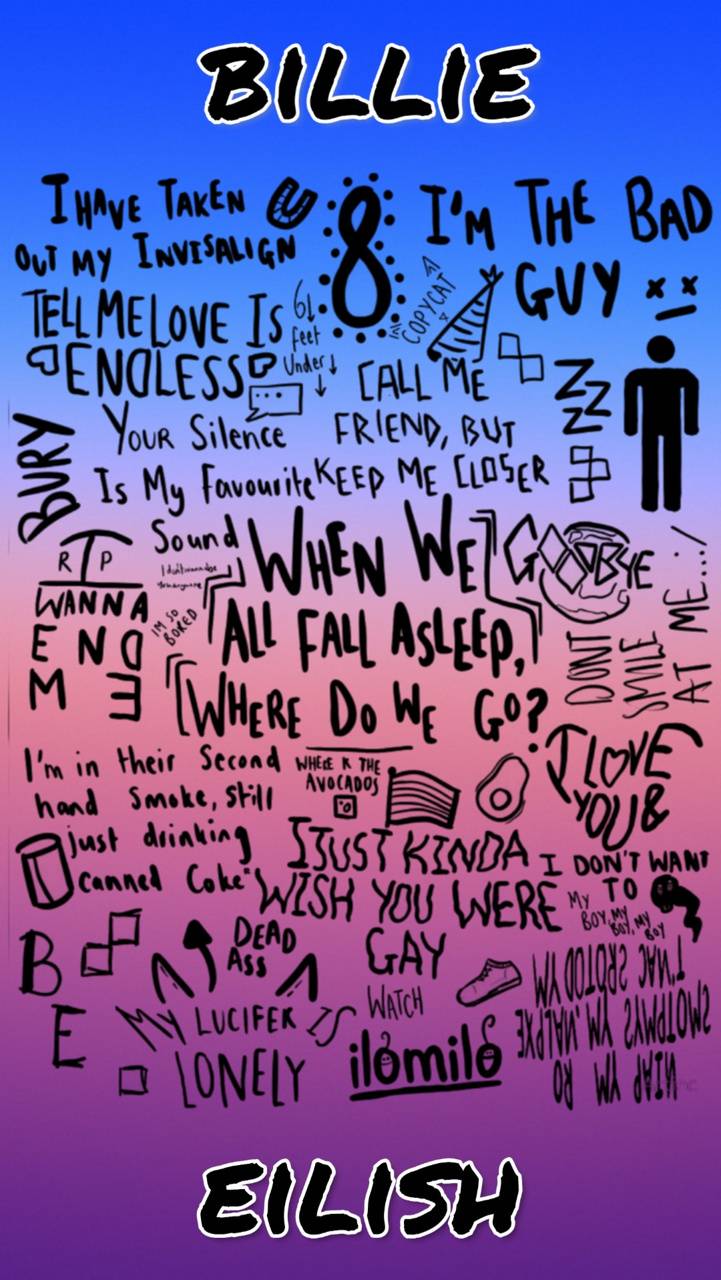 BILLIE
I HAVE TAKEN
OUT MY INVISALIGN
8
I'M THE BAD
GUY
TELL ME LOVE IS
ENDLESS
6
feet
Under
COPYCAT
CALL ME
FRIEND, BUT
KEEP ME CLOSER
ZZZZ
BURY
Your Silence
Is My Favourite
Sound
I don't wanna be
You anymore
RIP
WANNA
END
ME
I'M SO
BORED
WHEN WE
ALL FALL ASLEEP,
WHERE DO WE GO?
GOODBYE
DONT
SMILE
AT ME...:/
I'm in their Second
hand Smoke, Still
just drinking
canned Coke
WHERE R THE
AVOCADOS
I LOVE
YOU &
I DON'T WANT
TO
I JUST KINDA
WISH YOU WERE
GAY
MY
BOY, MY
BOY, MY
BOY
B
E
DEAD
ASS
MY LUCIFER IS
LONELY
WATCH
ilomilo
MY DOCTORS CAN'T
EXPLAIN, MY SYMPTOMS
OR MY PAIN
EILISH